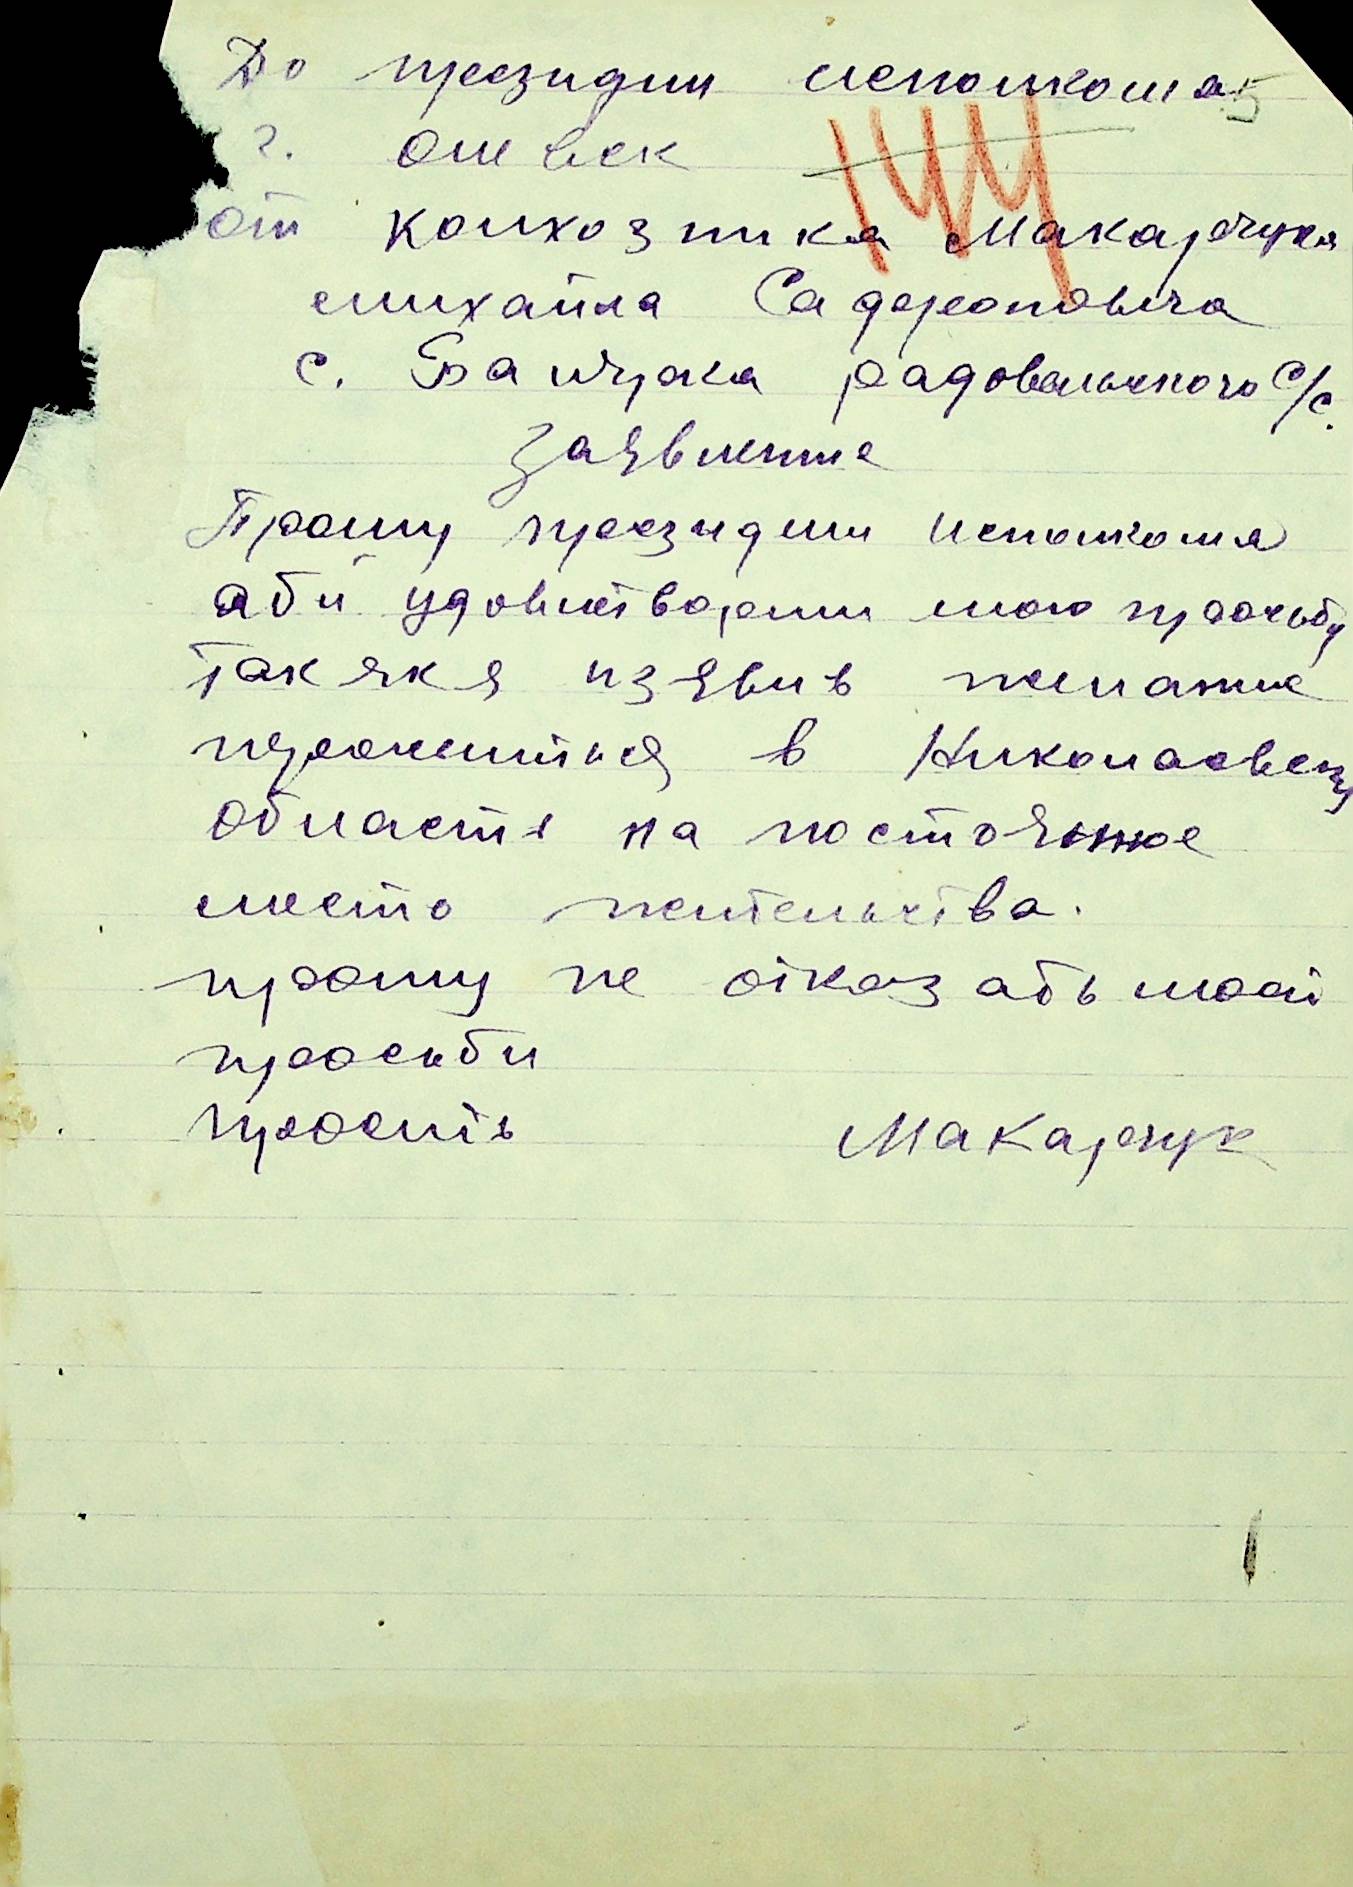 До президии исполкома
г. Олевск
от колхозника Макарчука
михайла Сафроновича
с. Бачурка радовельского с/с.
Заявление
Прошу президии исполкома
аби удовлетворили мою просьбу
так як я изявив желание
преожиться в Николаевску
области на постоянное
место жительства.
прошу не отказать моей
просьби
просить Макарчук